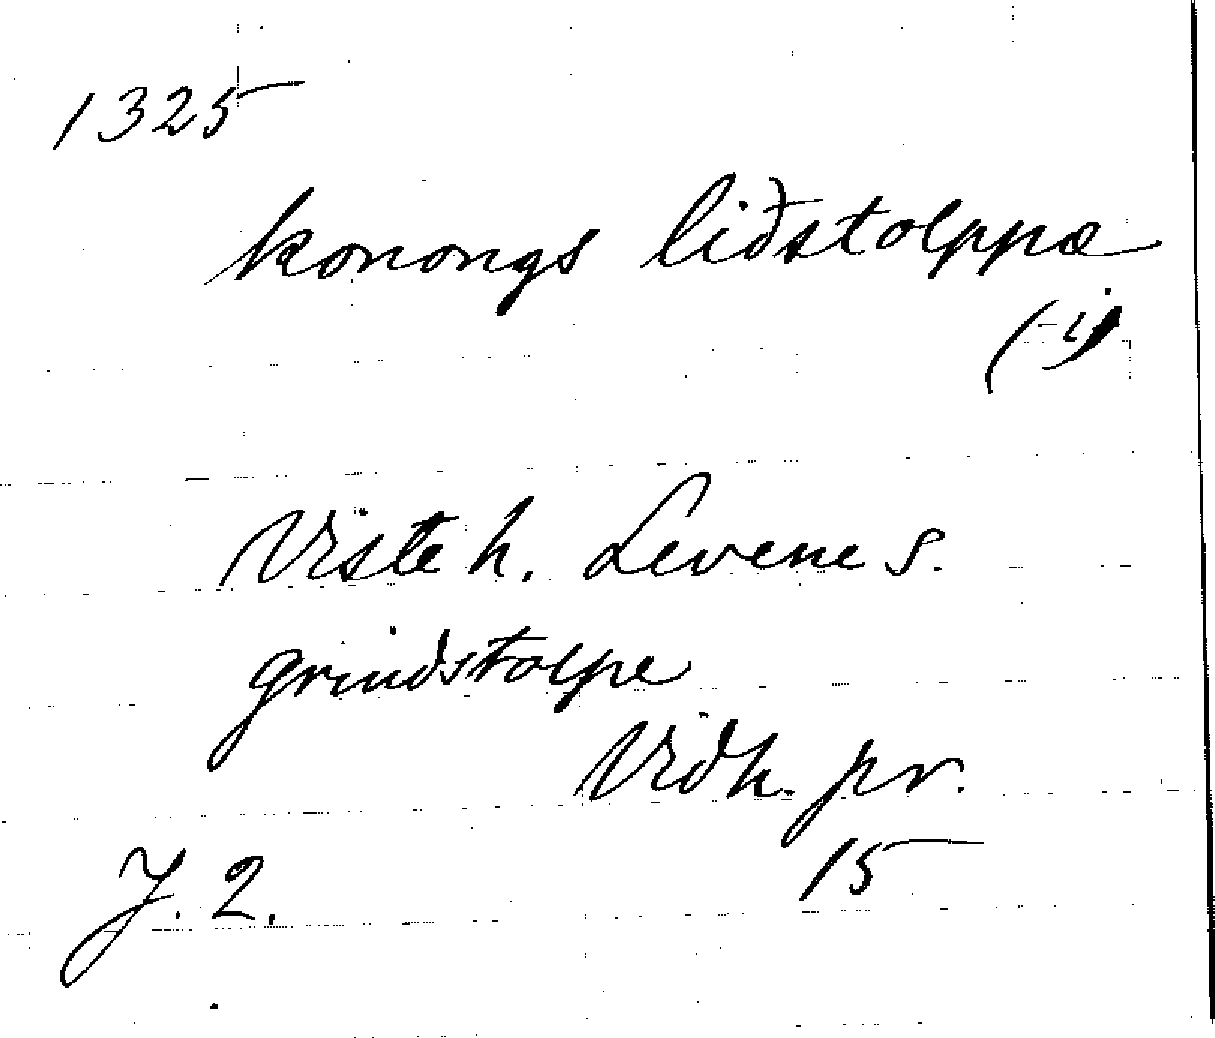 1325
konongs liðstolppæ
(-i)
Viste h. Levene s.
grindstolpe
Vidh. pr.
J. 2. 15